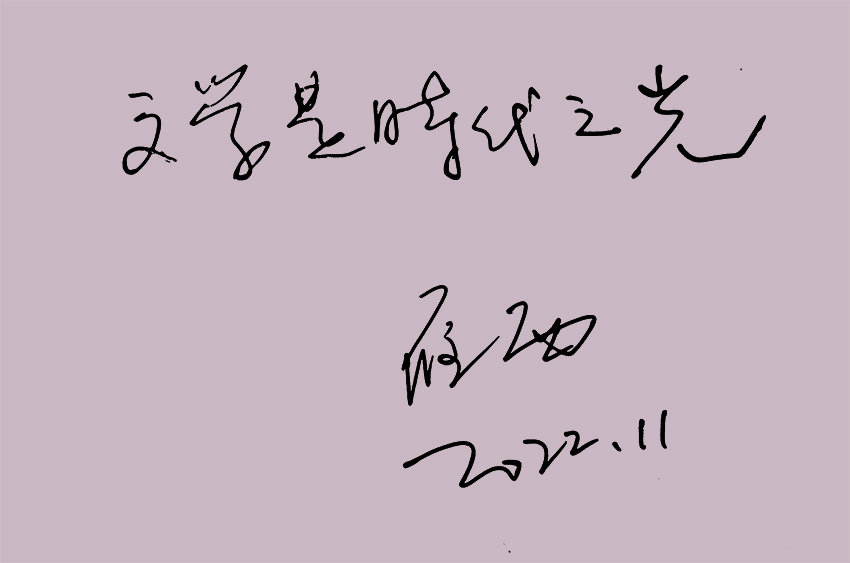 文学是时代之光
雁西
2022.11